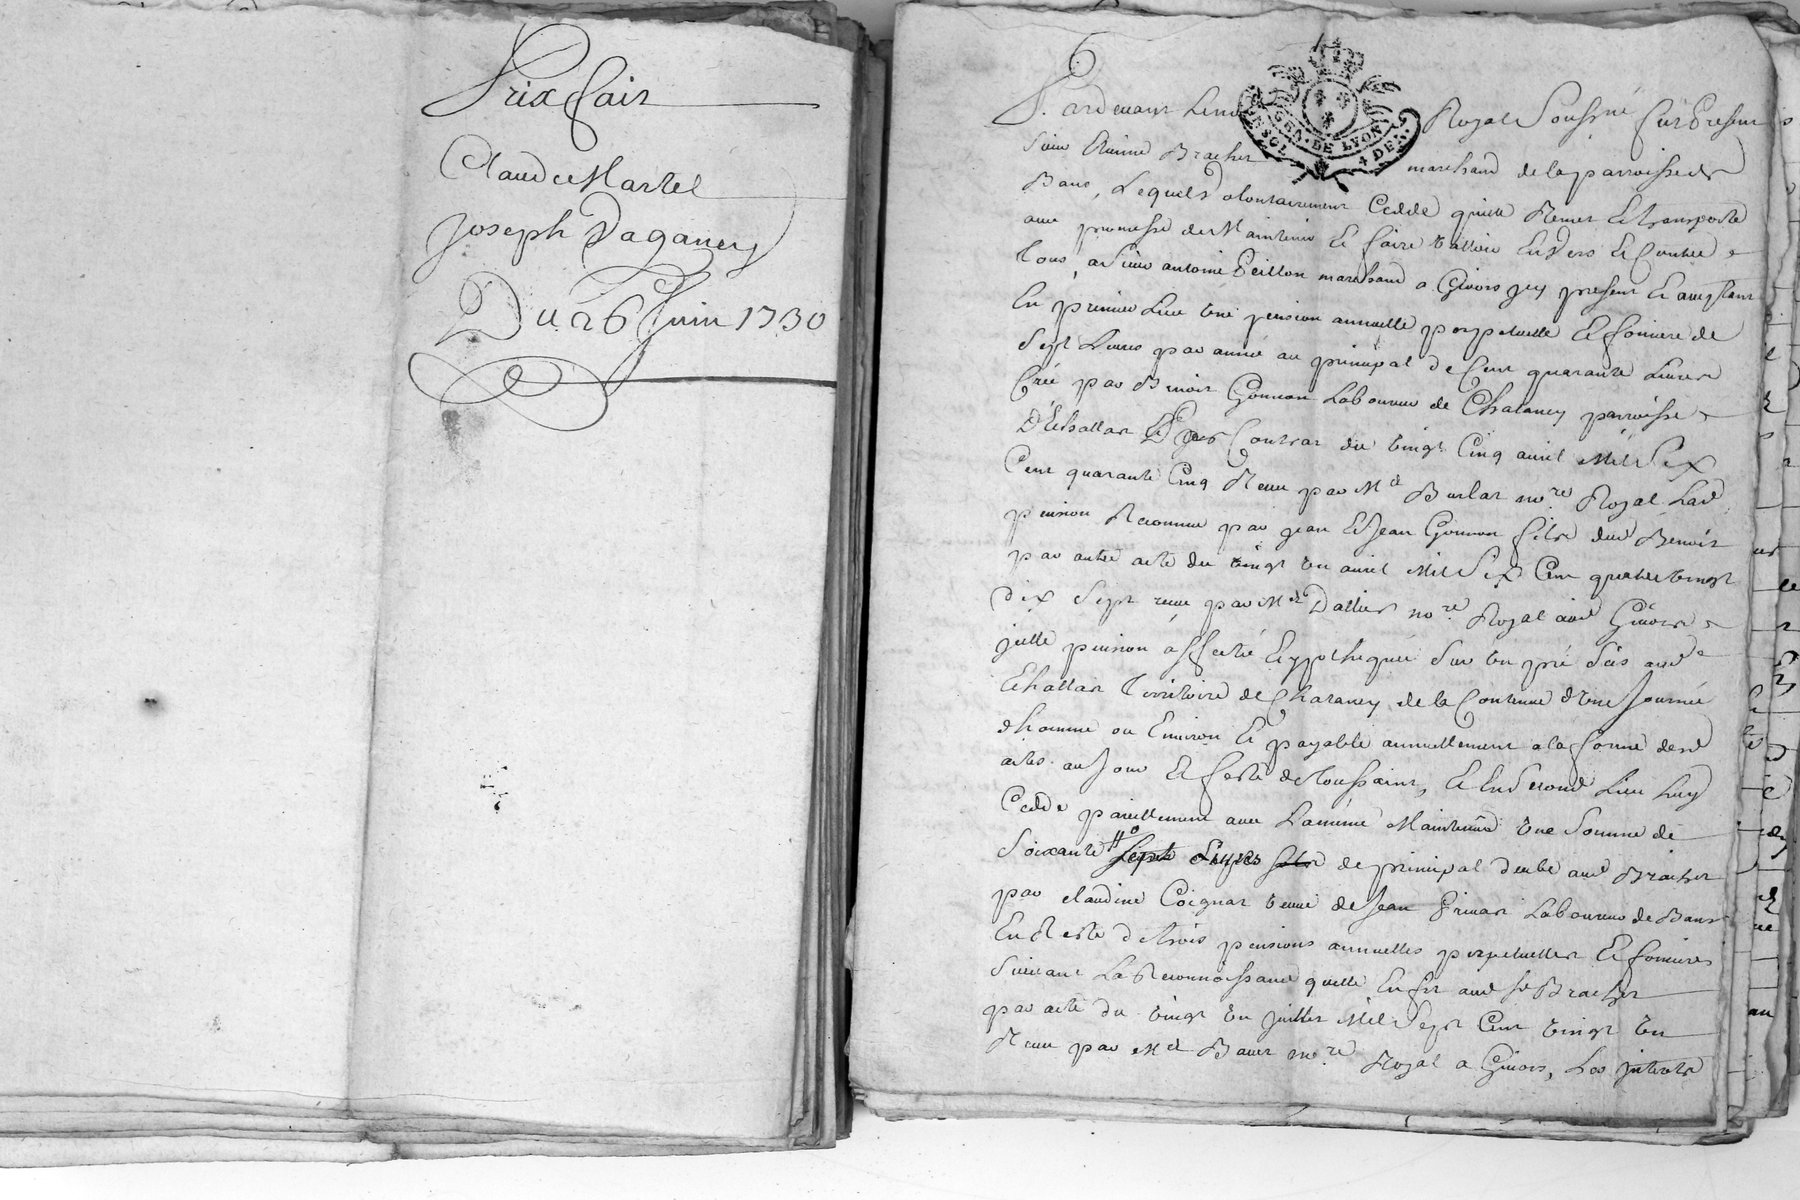 Prix fait
Claude Martel
Joseph Daganery
Du 26 Juin 1730
GEN. DE LYON
4 DEN.
Pardevant Le no Royal Soussigné fut Present
Sieur Etienne Bracher marchand de la parroisse de
Bans, Lequel volontairement Cedde quitte Remet Et transporte
avec promesse de Maintenir Et faire valloir Envers Et Contre
tous, a Sieur antoine Peillon marchand a Givors icy present Et acceptant
En premier Lieu Une pension annuelle perpetuelle Et fonciere de
Sept Livres par année au principal de Cent quarante Livres
Créé par Benoit Gonnon Laboureur de Chatanay parroisse
D'Echallas par Contrat du vingt Cinq avril Mil Six
Cent quarante Cinq Receu par Me Burlat nore Royal Lad
pension Reconnue par jean Et Jean Gonnon fils dud Benoit
par autre acte du vingt un avril Mil Six Cent quatre vingt
dix Sept receu par Me Dallier nore Royal aud Givors
jcelle pension affectée Et ypothequée Sur un pré Sis aud
Echallas Territoire de Chatanay de la Contenue d'Une Journée
d'homme ou Environ Et payable annuellement a la forme desd
actes au Jour Et feste de toussaint, Et En Second Lieu Luy
Cedde pareillement avec La même Maintenue Une Somme de
Soixante Sept Livres de principal deube aud Bracher
par claudine Coignat veuve de Jean Privas Laboureur de Bans
En Reste de trois pensions annuelles perpetuelles Et foncieres
Suivant La Reconnoissance quelle En fit aud Sr Bracher
par acte du vingt un juillet Mil Sept Cent vingt un
Receu par Me Baues nore Royal a Givors, Les jnterests